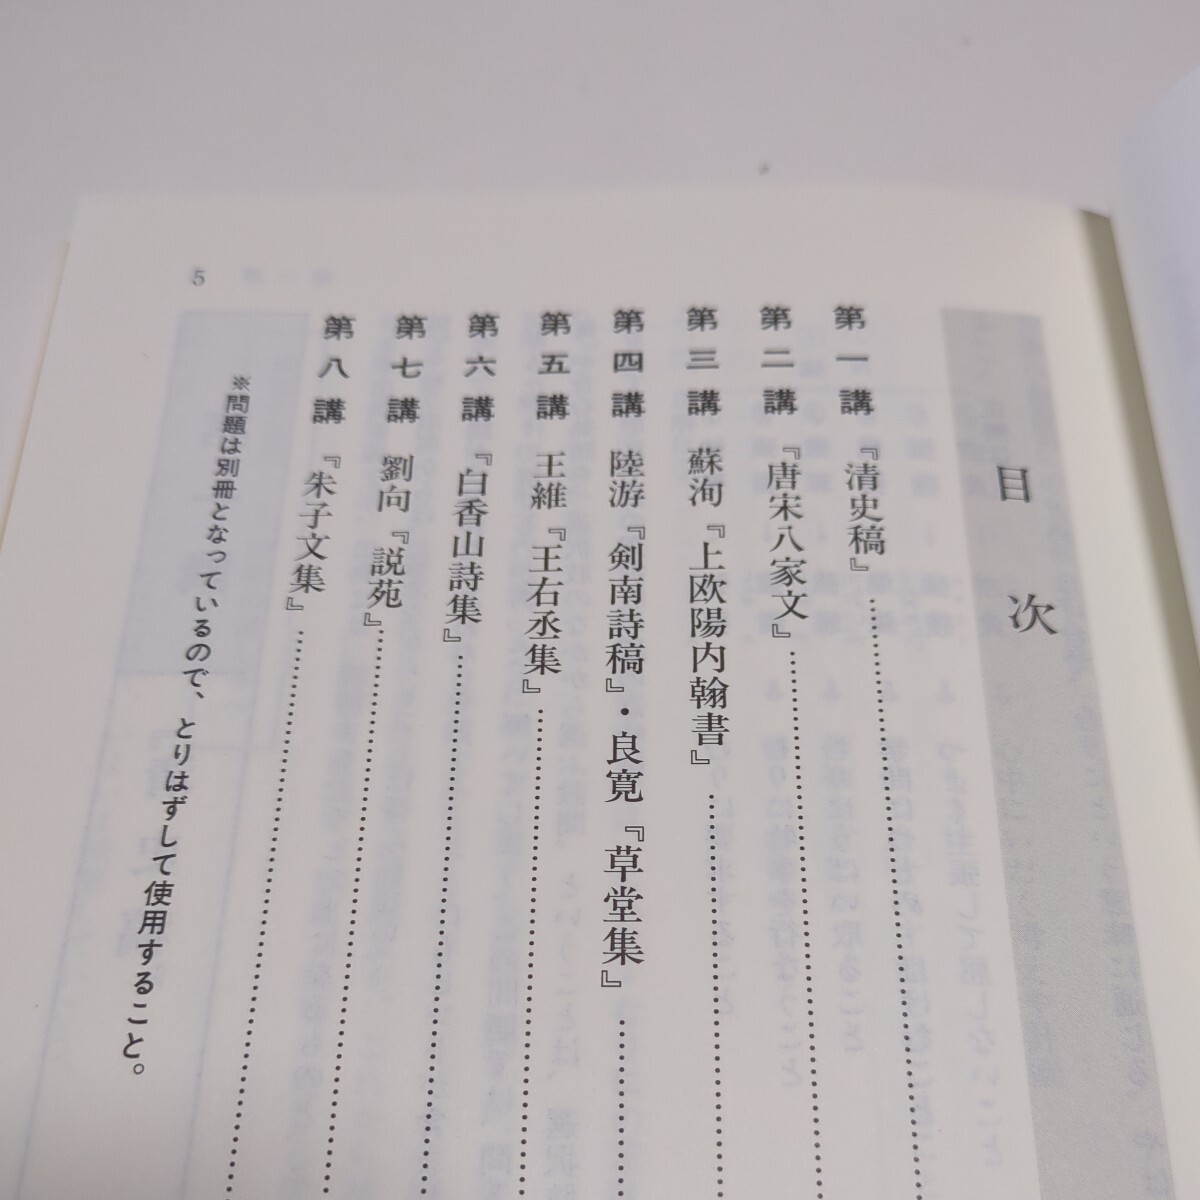 目次
第一講 『清史稿』
第二講 『唐宋八家文』
第三講 蘇洵『上欧陽内翰書』
第四講 陸游『剣南詩稿』・良寛『草堂集』
第五講 王維『王右丞集』
第六講 『白香山詩集』
第七講 劉向『説苑』
第八講 『朱子文集』
※問題は別冊となっているので、とりはずして使用すること。
5